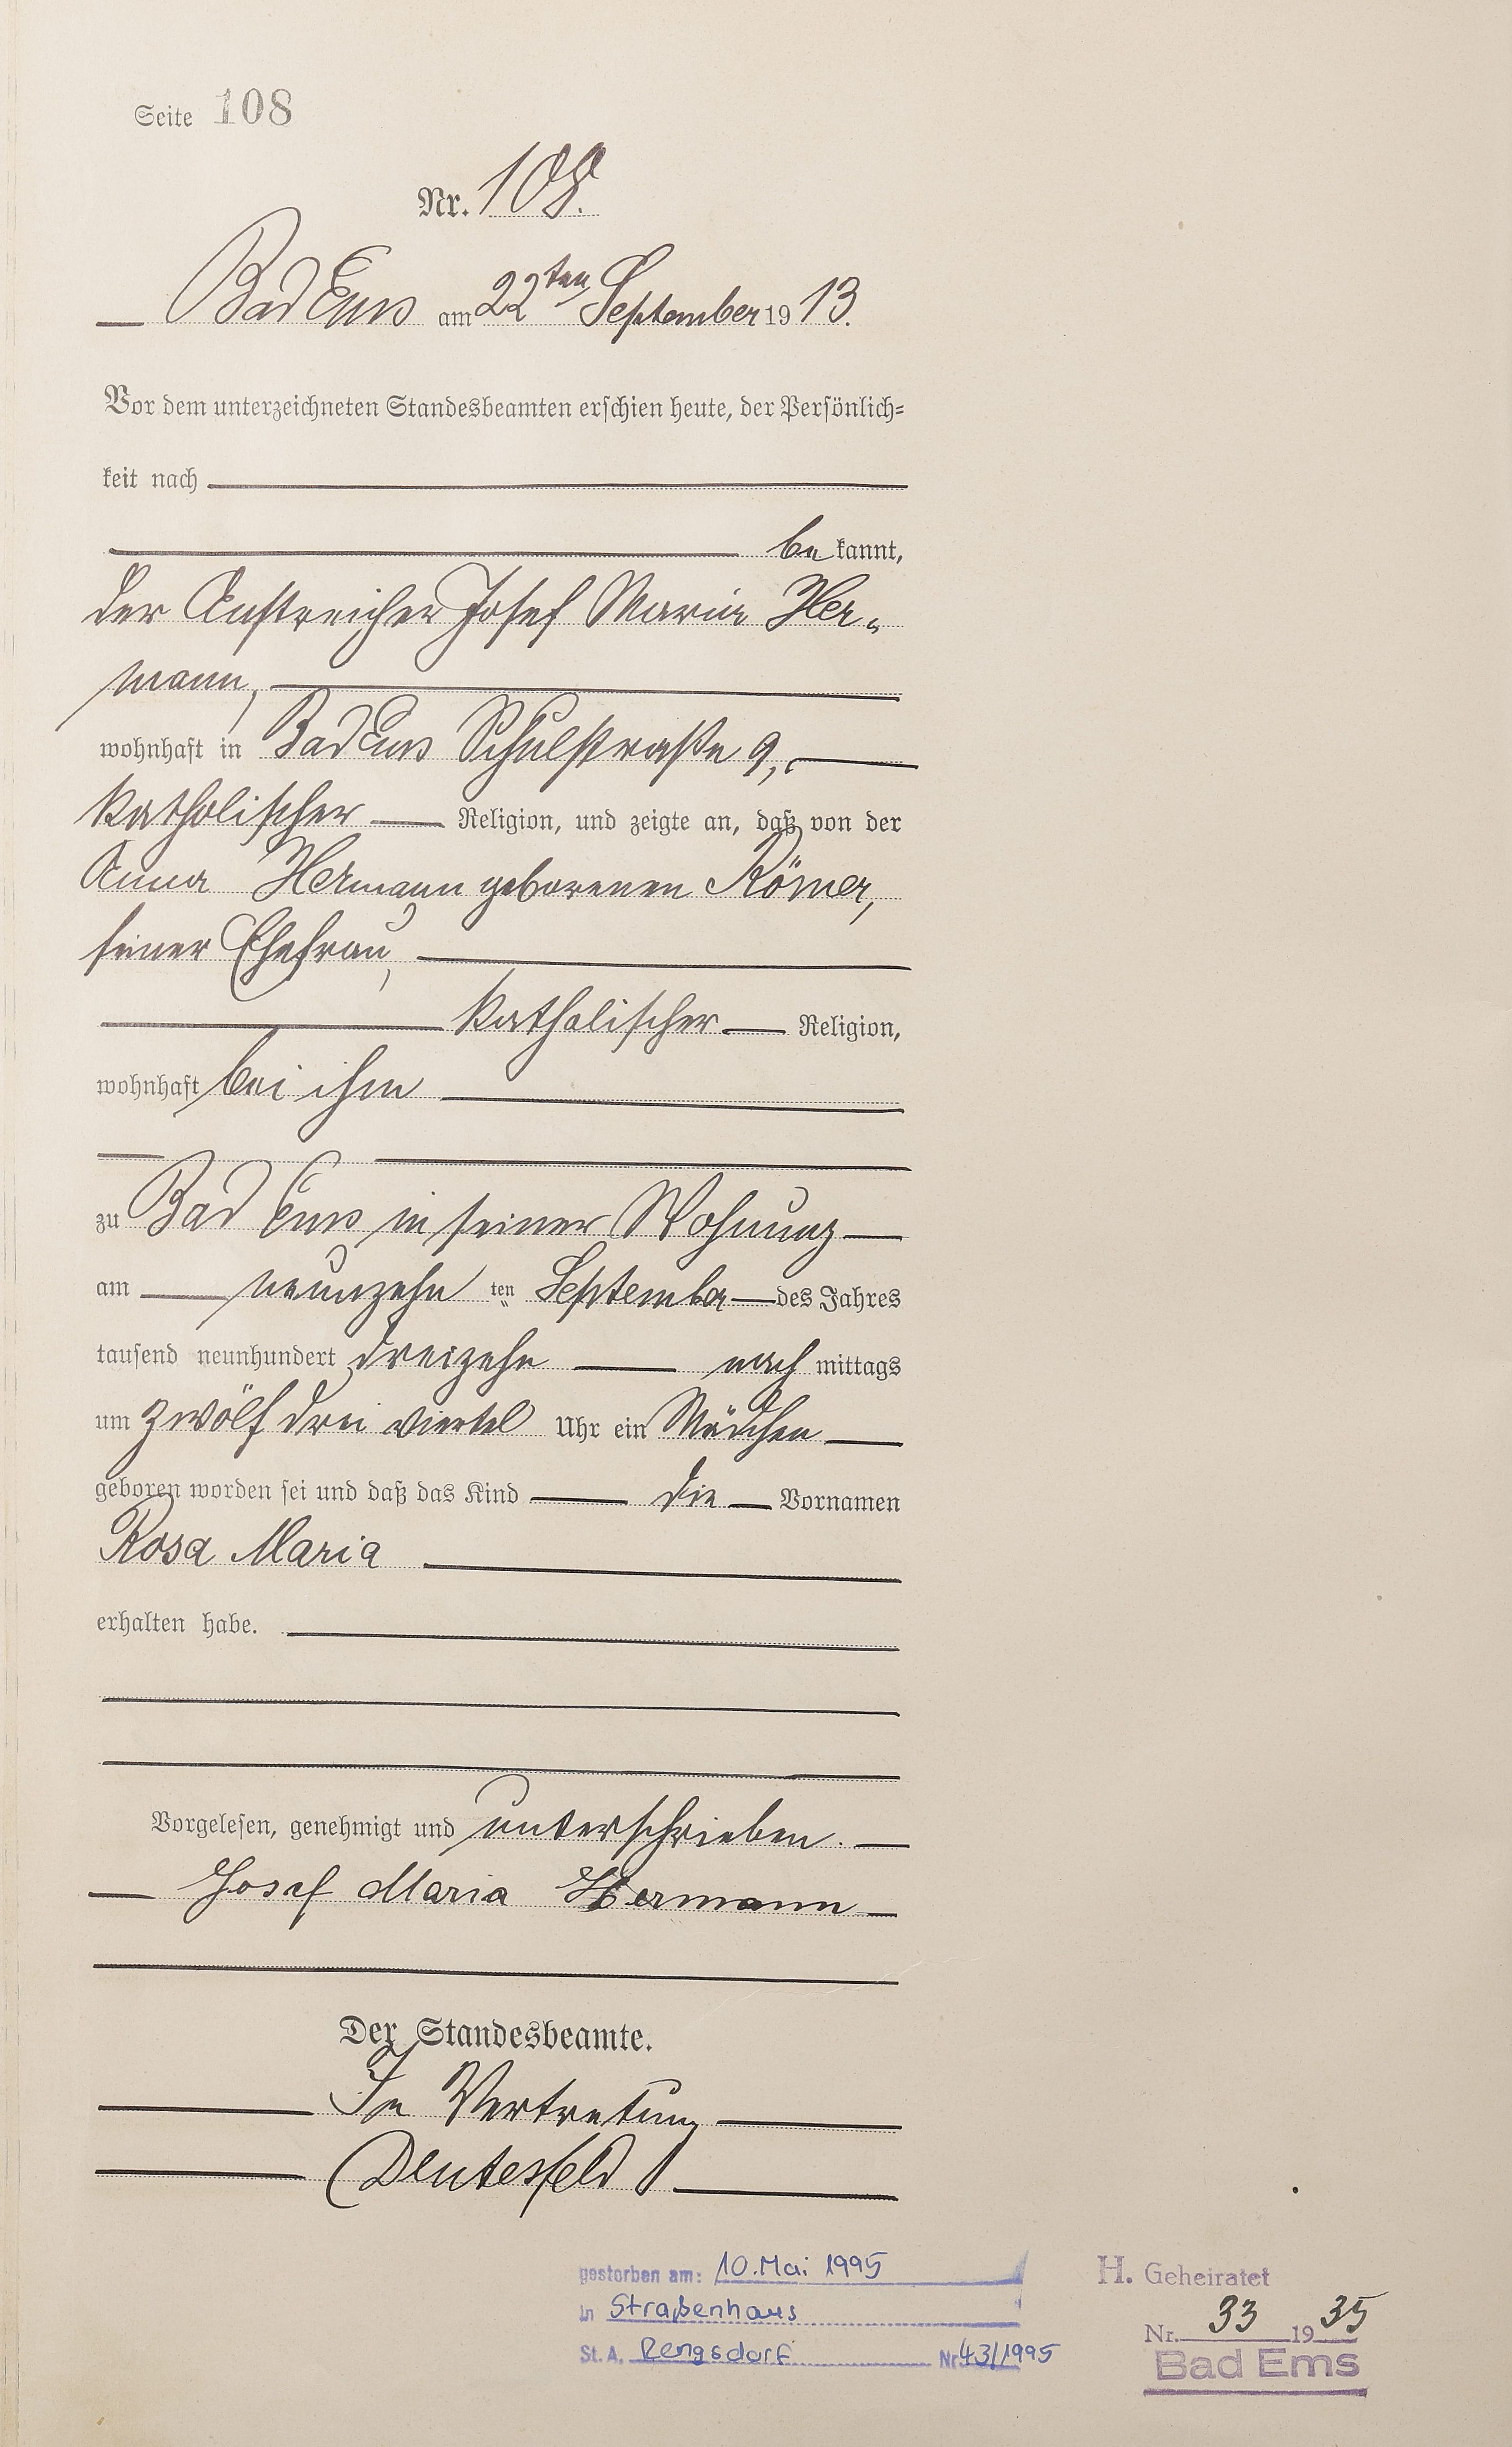 Seite 108
Nr. 108.
Bad Ems am 22ten September 1913.
Vor dem unterzeichneten Standesbeamten erschien heute, der Persönlich=
keit nach
be kannt,
der Anstreicher Josef Maria Her-
mann,
wohnhaft in Bad Ems Schulstraße 9,
katholischer Religion, und zeigte an, daß von der
Anna Hermann geborenen Römer,
seiner Ehefrau,
katholischer Religion,
wohnhaft bei ihm
zu Bad Ems in seiner Wohnung
am neunzehn ten September des Jahres
tausend neunhundert dreizehn nach mittags
um zwölf drei viertel Uhr ein Mädchen
geboren worden sei und daß das Kind die Vornamen
Rosa Maria
erhalten habe.
Vorgelesen, genehmigt und unterschrieben.
Josef Maria Hermann
Der Standesbeamte.
In Vertretung
Deutesfeld
gestorben am: 10. Mai 1995
in Straßenhaus
St. A. Rengsdorf Nr 43/1995
H. Geheiratet
Nr. 33 1935
Bad Ems